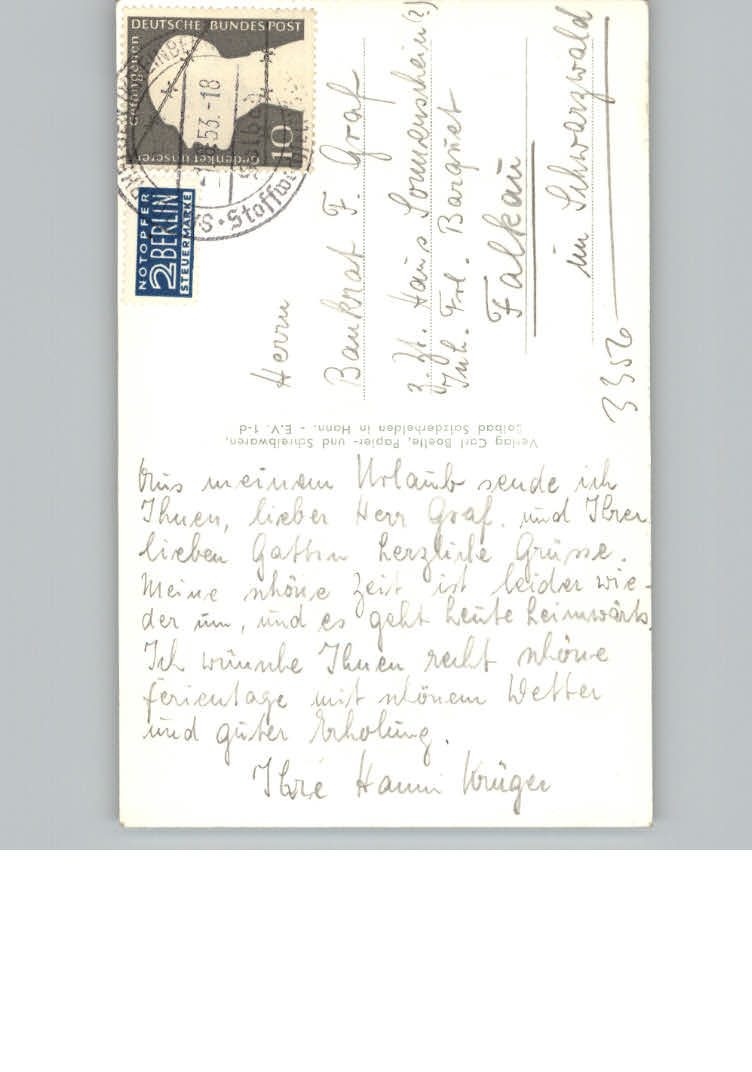 Aus meinem Urlaub sende ich
Ihnen, lieber Herr Graf. und Ihrer
lieben Gattin herzliche Grüsse.
Meine schöne Zeit ist leider wie-
der um, und es geht heute heimwärts.
Ich wünsche Ihnen recht schöne
Ferientage mit schönem Wetter
und guter Erholung.
Ihre Hanni Krüger
Verlag Carl Boelte, Papier- und Schreibwaren,
Solbad Salzderhelden in Hann. - E.V. 1-d
Herrn
Bankrat F. Graf
z. Zt. Haus Sonnenschein (?)
Inh. Frl. Barquet
Falkau
im Schwarzwald
3356
DEUTSCHE BUNDESPOST
Gedenket unserer
Gefangenen
10
NOTOPFER
2 BERLIN
STEUERMARKE
53.-18
Solbad
Stoffw